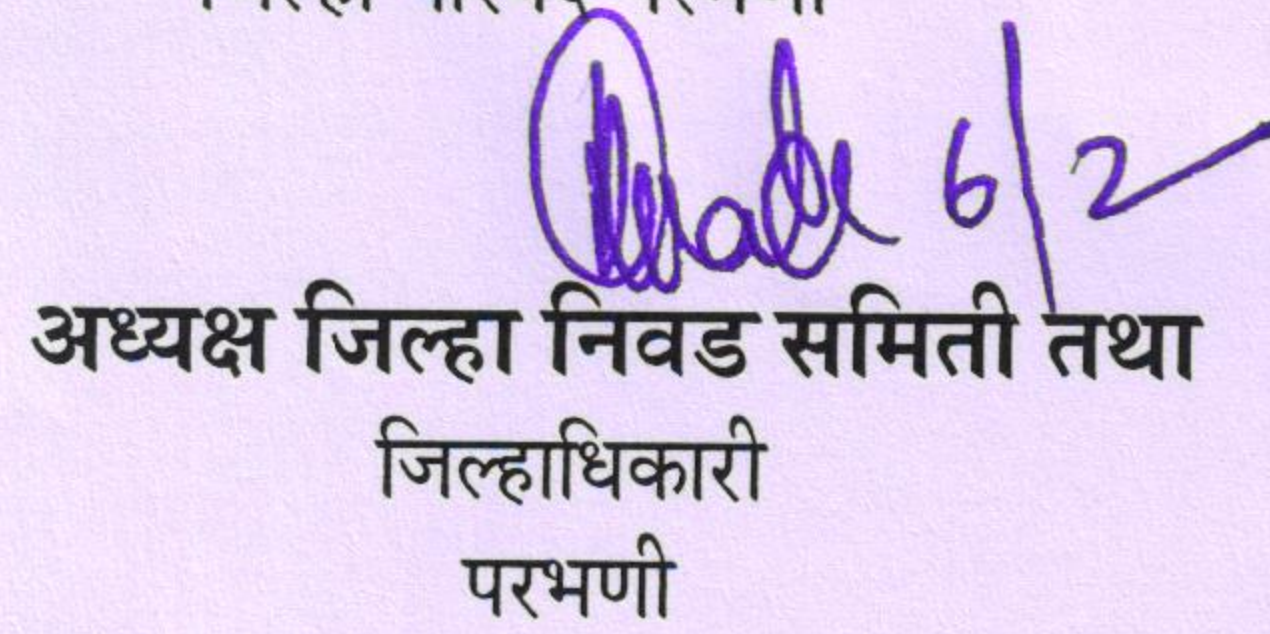 6/2
अध्यक्ष जिल्हा निवड समिती तथा
जिल्हाधिकारी
परभणी